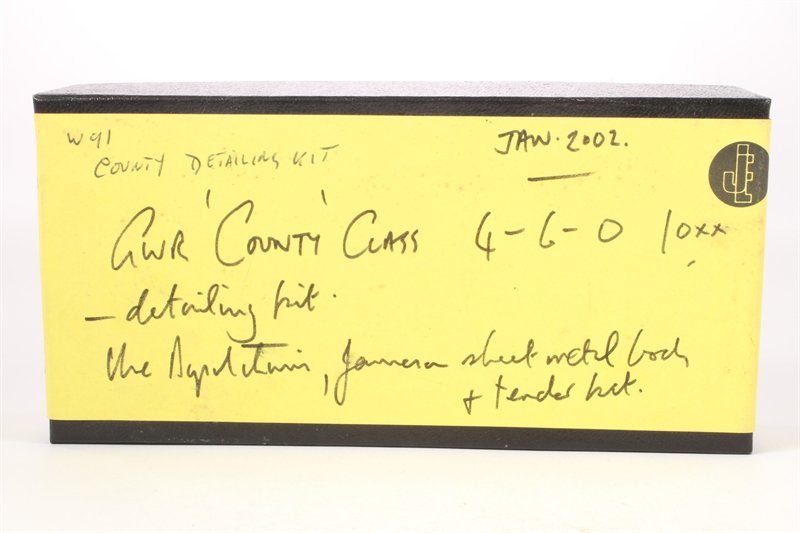 W91
COUNTY DETAILING KIT
JAN. 2002.
GWR 'COUNTY' CLASS 4-6-0 10xx
- detailing kit.
the , Jameson sheet metal body
+ tender kit.